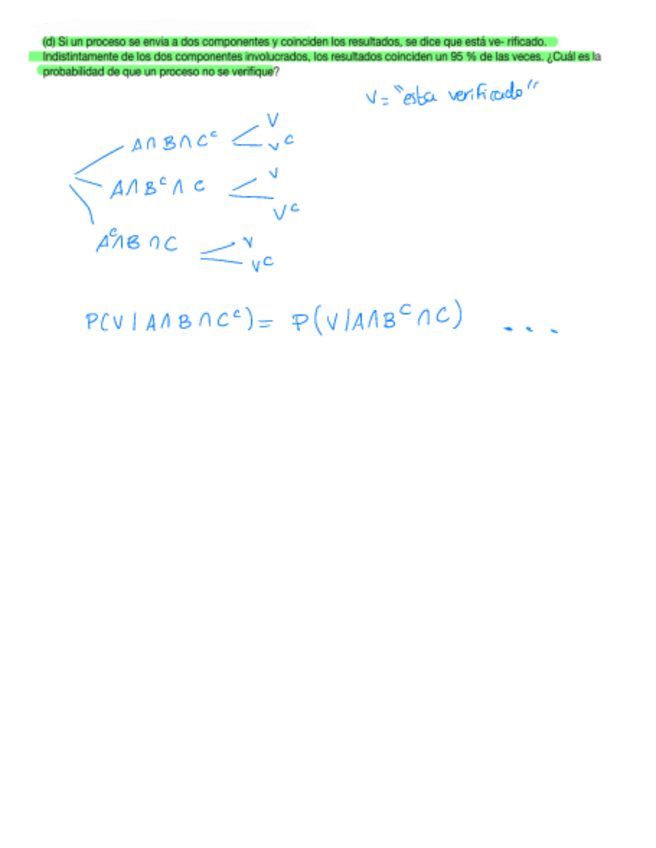 (d) Si un proceso se envia a dos componentes y coinciden los resultados, se dice que está ve- rificado.
Indistintamente de los dos componentes involucrados, los resultados coinciden un 95 % de las veces. ¿Cuál es la
probabilidad de que un proceso no se verifique?
V = "esta verificado"
A∩B∩Cᶜ < V
Vᶜ
A∩Bᶜ∩C V
Vᶜ
Aᶜ∩B∩C V
Vᶜ
P(V | A∩B∩Cᶜ) = P(V | A∩Bᶜ∩C) ...